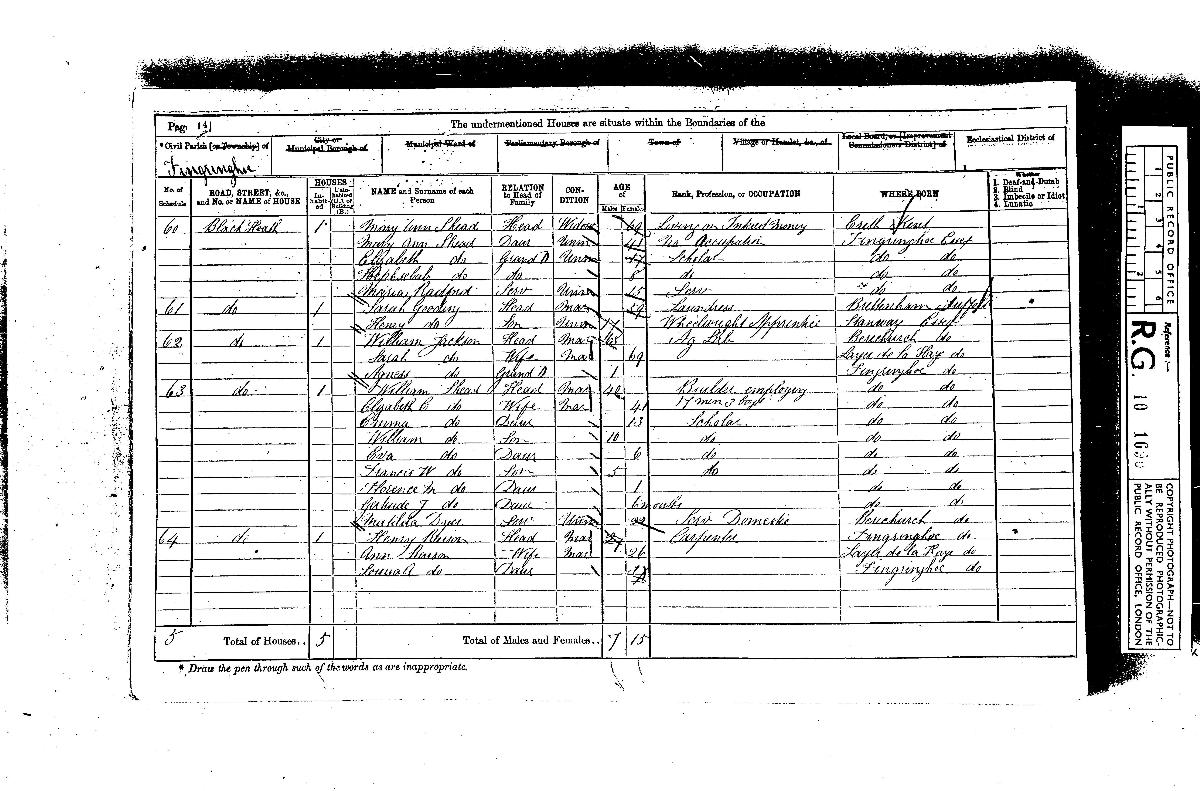 Page 14
The undermentioned Houses are situate within the Boundaries of the
* Civil Parish [or Township] of
City or Municipal Borough of
Municipal Ward of
Parliamentary Borough of
Town of
Village or Hamlet, &c., of
Local Board, or [Improvement Commissioners District] of
Ecclesiastical District of
Fingringhoe
No. of Schedule
ROAD, STREET, &c., and No. or NAME of HOUSE
HOUSES
Inhabited
Uninhabited (U.) or Building (B.)
NAME and Surname of each Person
RELATION to Head of Family
CONDITION
AGE of
Males
Females
Rank, Profession, or OCCUPATION
WHERE BORN
Whether
1. Deaf-and-Dumb
2. Blind
3. Imbecile or Idiot
4. Lunatic
60 Black Heath 1 Mary Ann Shead Head Widow 69 Living on Interest money Erith Kent
Mary Ann Shead Daur Unm 41 No Occupation Fingringhoe Essex
Elizabeth do Grand D Unm 17 Scholar do do
do do 8 do do do
Maria Radford Serv Unm 15 Serv do do
61 do 1 Sarah Gooding Head Mar 59 Laundress Brettenham Suffolk
Henry do Son Unm 17 Wheelwright Apprentice Stanway Essex
62 do 1 William Jackson Head Mar 68 Ag Lab Berechurch do
Sarah do Wife Mar 69 Layer de la Hay do
Agness do Grand D 1 Fingringhoe do
63 do 1 William Shead Head Mar 40 Builder employing do do
17 men 3 boys
Elizabeth C do Wife Mar 41 do do
Emma do Daur 13 Scholar do do
William do Son 10 do do do
Eva do Daur 6 do do do
Francis W do Son 5 do do do
Florence M do Daur 1 do do
Gertrude J do Daur 6 months do do
Matilda Dyer Serv Unm 22 Serv Domestic Berechurch do
64 do 1 Henry Head Mar 27 Carpenter Fingringhoe do
Ann Wife Mar 26 Layer de la Haye do
Louisa A do Daur Fingringhoe do
5 Total of Houses.. 5 Total of Males and Females.. 7 15
* Draw the pen through such of the words as are inappropriate.
PUBLIC RECORD OFFICE
1 2 3 4 5 6
1 2
Reference :—
R.G. 10
COPYRIGHT PHOTOGRAPH—NOT TO
BE REPRODUCED PHOTOGRAPHIC-
ALLY WITHOUT PERMISSION OF THE
PUBLIC RECORD OFFICE, LONDON